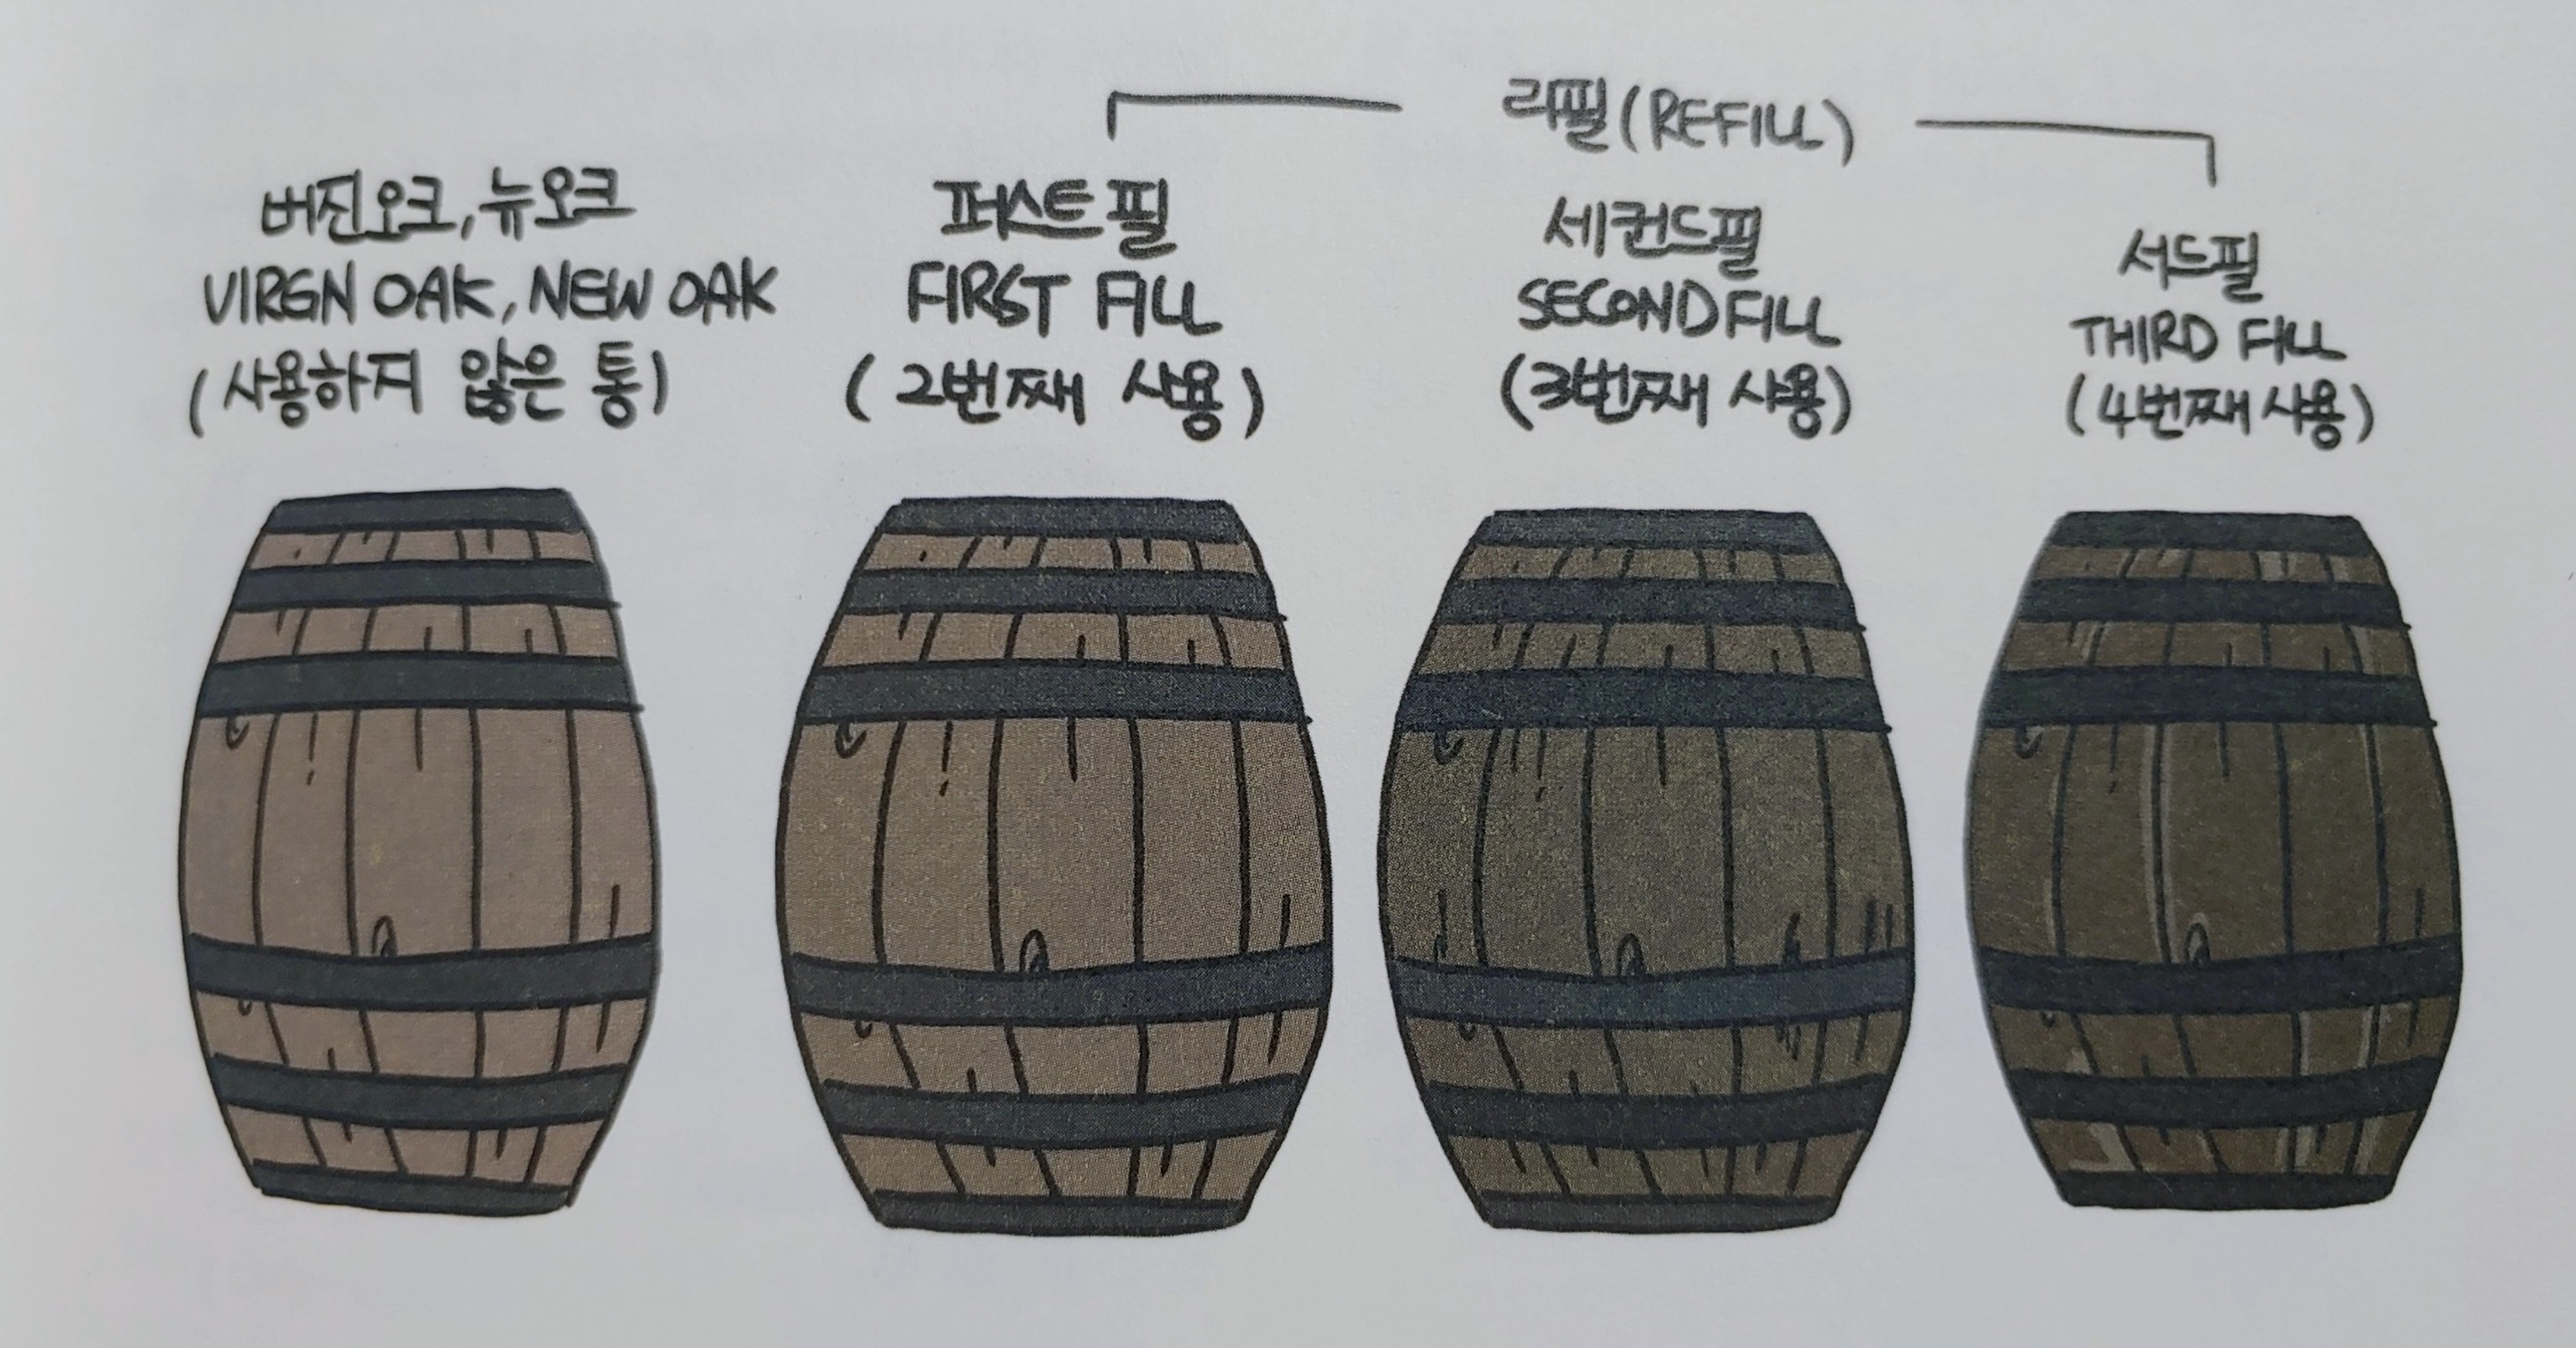 리필(REFILL)
버진오크, 뉴오크
VIRGN OAK, NEW OAK
(사용하지 않은 통)
퍼스트 필
FIRST FILL
(2번째 사용)
세컨드필
SECOND FILL
(3번째 사용)
서드필
THIRD FILL
(4번째 사용)